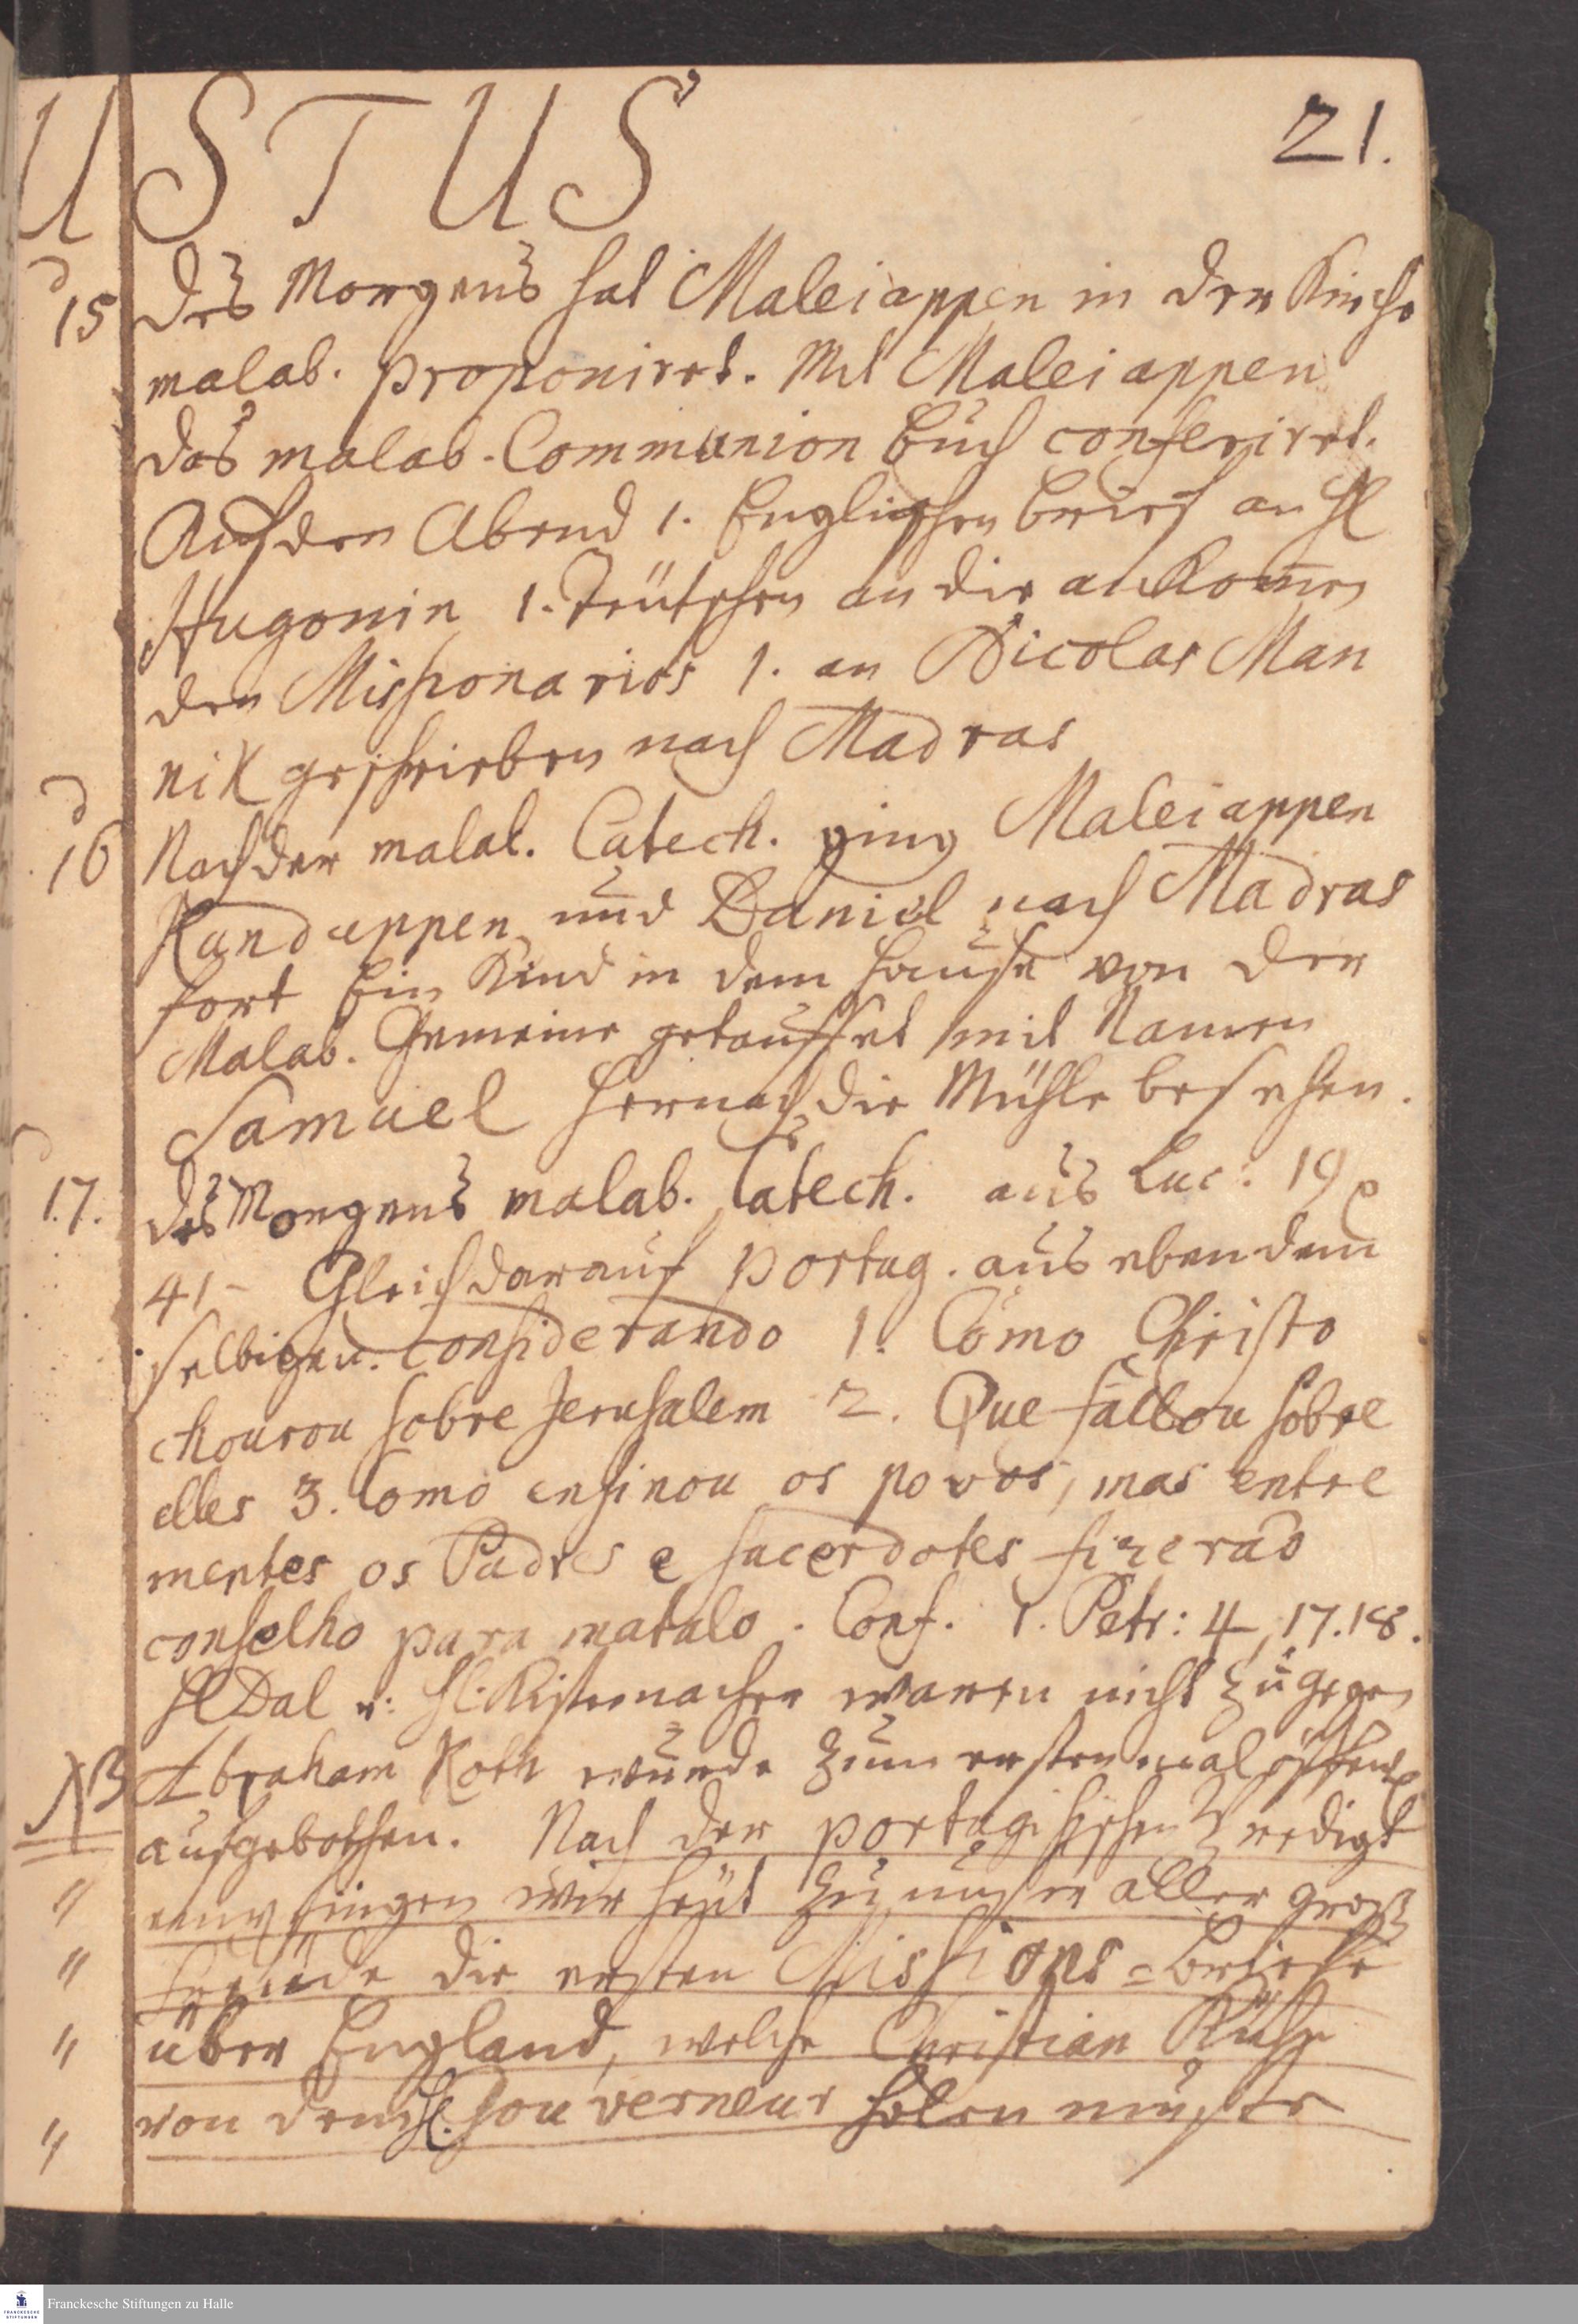 USTUS
21.
15 Des Morgens hat Maleiappen in der Kirche
malab. proponiret. Mit Maleiappen
das malab. Communion Buch conferiret.
Auf den Abend 1. Englischen Brief an H
Hugonin 1. Teütschen an die ankom̅en
den Missionarios 1. an Nicolas Man
nik geschrieben nach Madras
16 Nach der malab. Catech. ging Maleiappen
Kanduppen und Daniel nach Madras
fort Ein Kind in dem Hause von der
Malab. Gemeine getauffet mit Namen
Samuel hernach die Mühle besehen.
17. des Morgens malab. Catech. aus Luc: 19
41- Gleich darauf portug. aus eben dem
selbigen. considerando 1. Como Christo
chourou sobre Jerusalem 2. Que fallou sobre
elles 3. Como ensinou os povos, mas entre
mentes os Padres e sacerdotes fizeraõ
conselho para matalo. Conf. 1. Petr: 4, 17.18.
H Dal u: H. Kistenmacher waren nicht zugegen
NB Abraham Koth wurde zum ersten mal öffentl
aufgebothen. Nach der portugisischen Predigt
" empfingen wir heüt zu unser aller groß
" freüde die ersten Missions=briefe
" über England, welche Christian Kühn
" von dem H. Gouverneur holen muste
Franckesche Stiftungen zu Halle